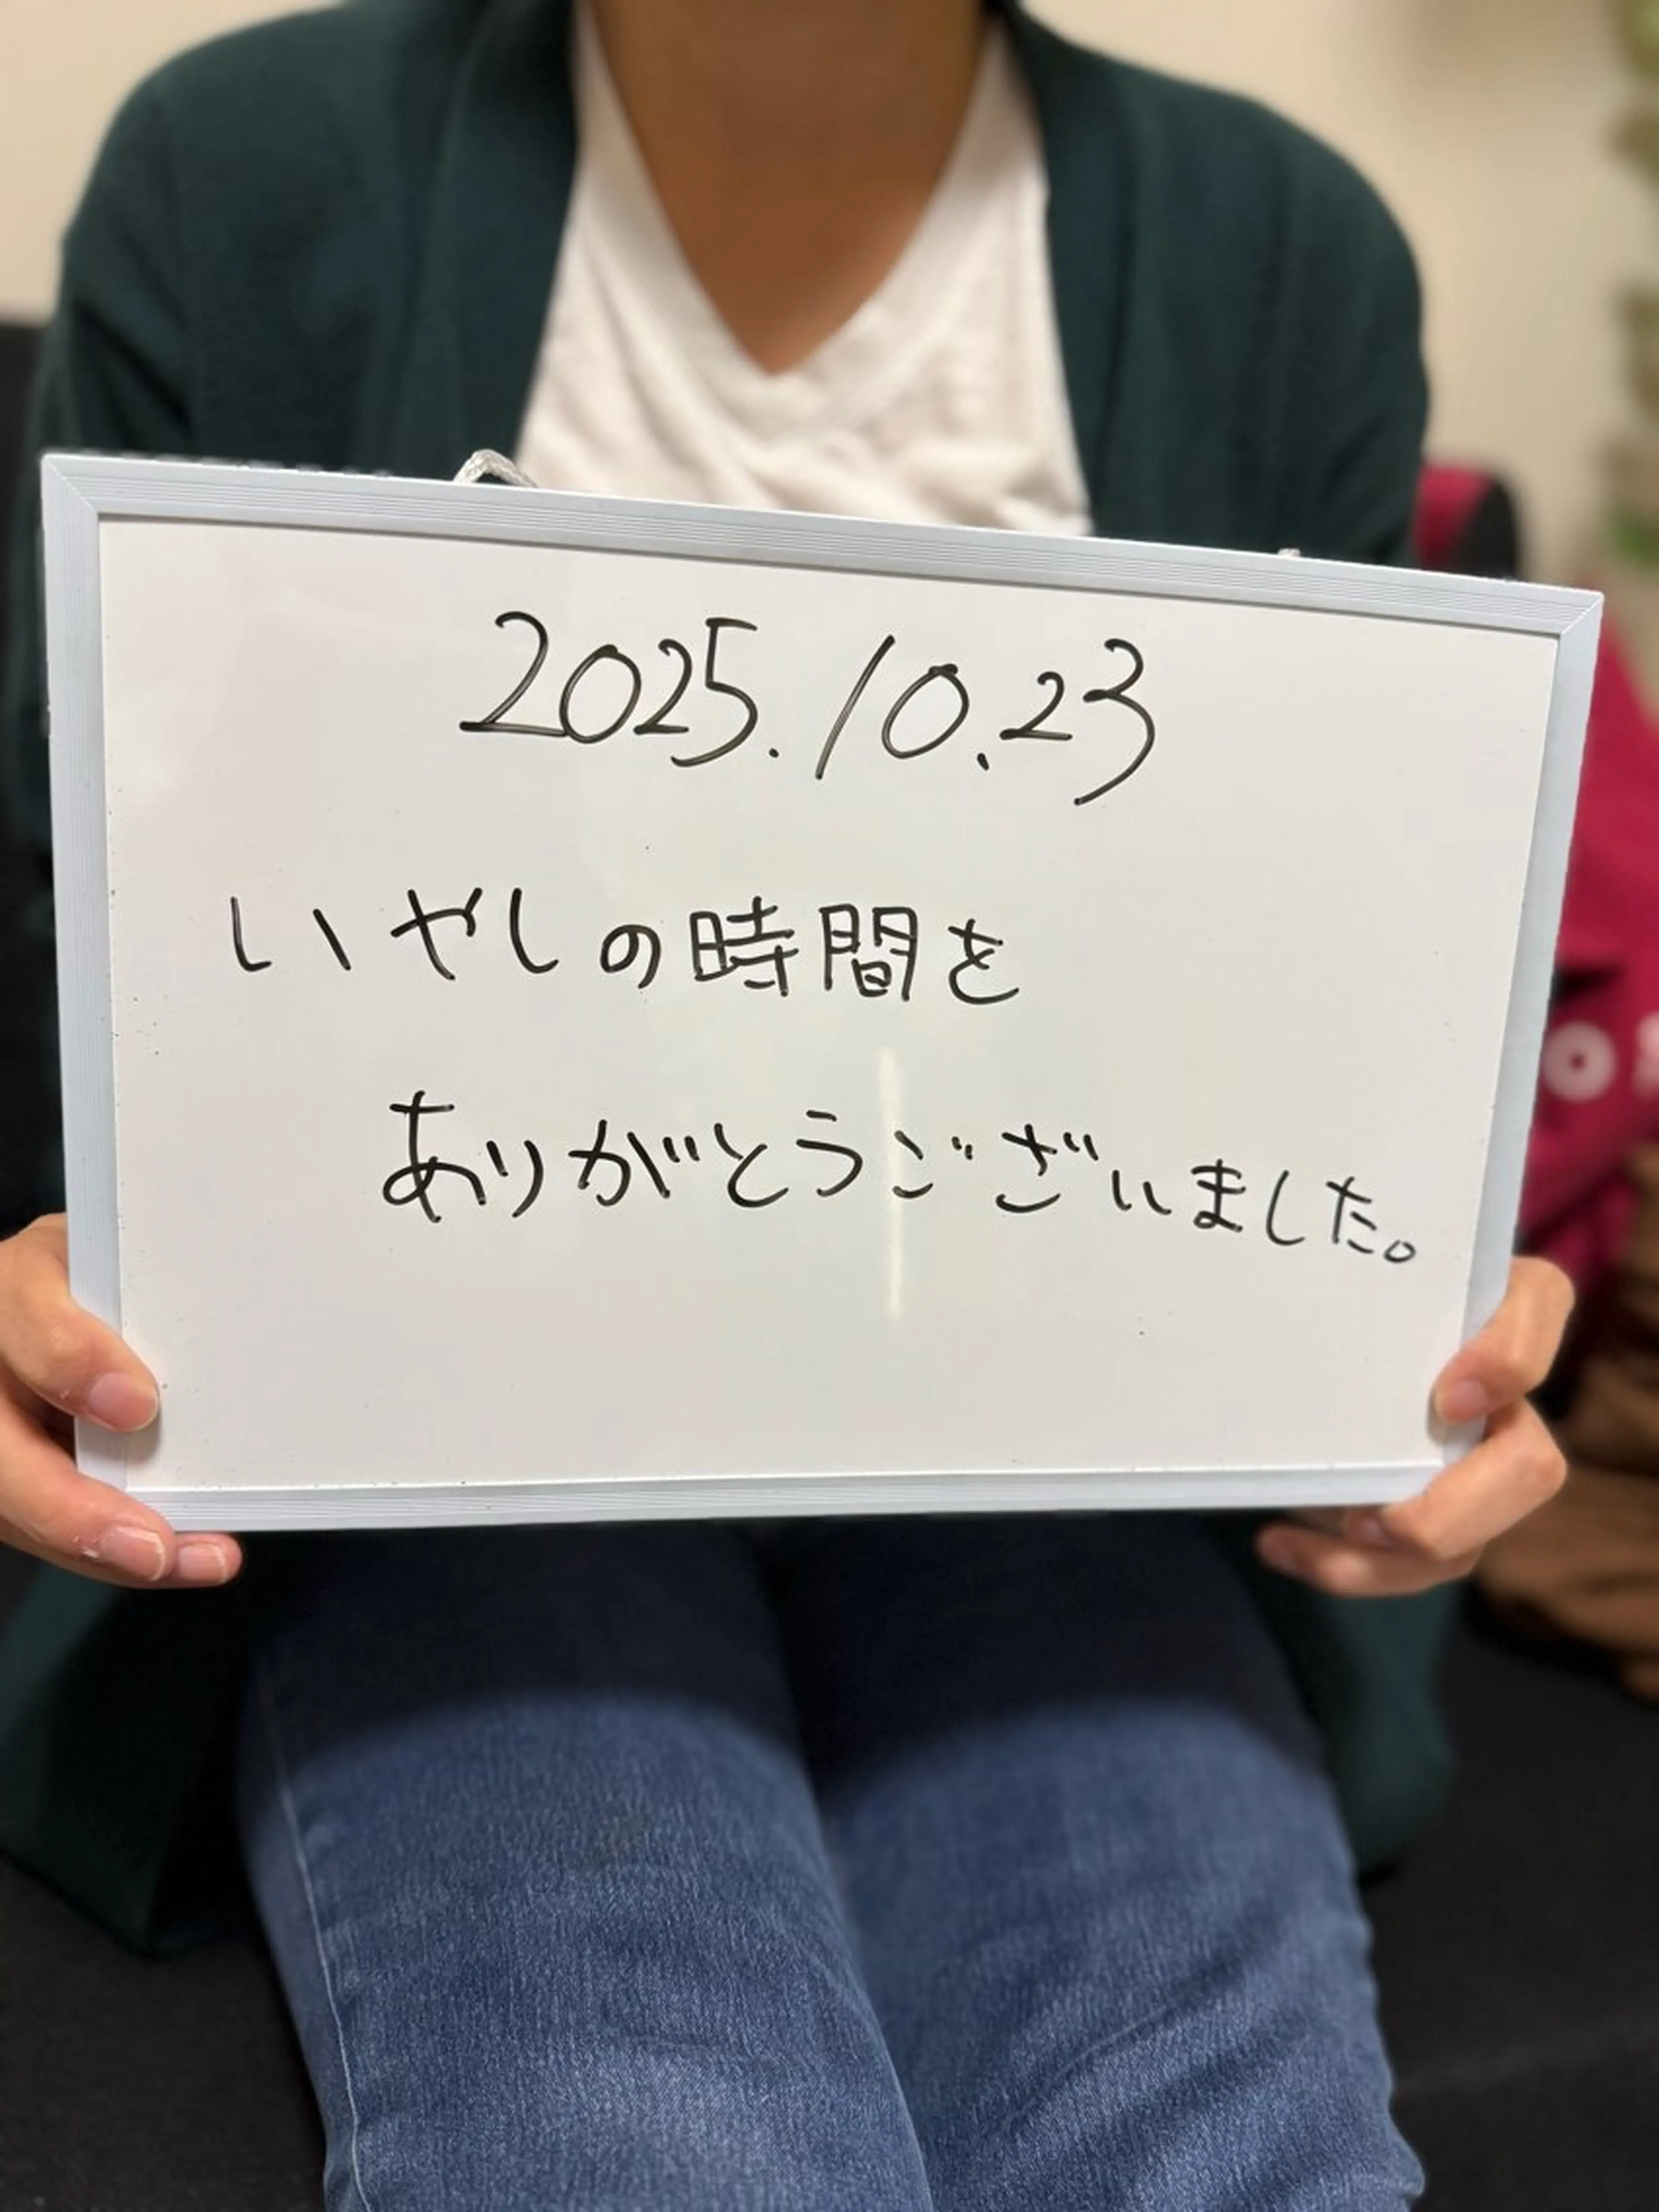 2025.10.23
いやしの時間を
ありがとうございました。